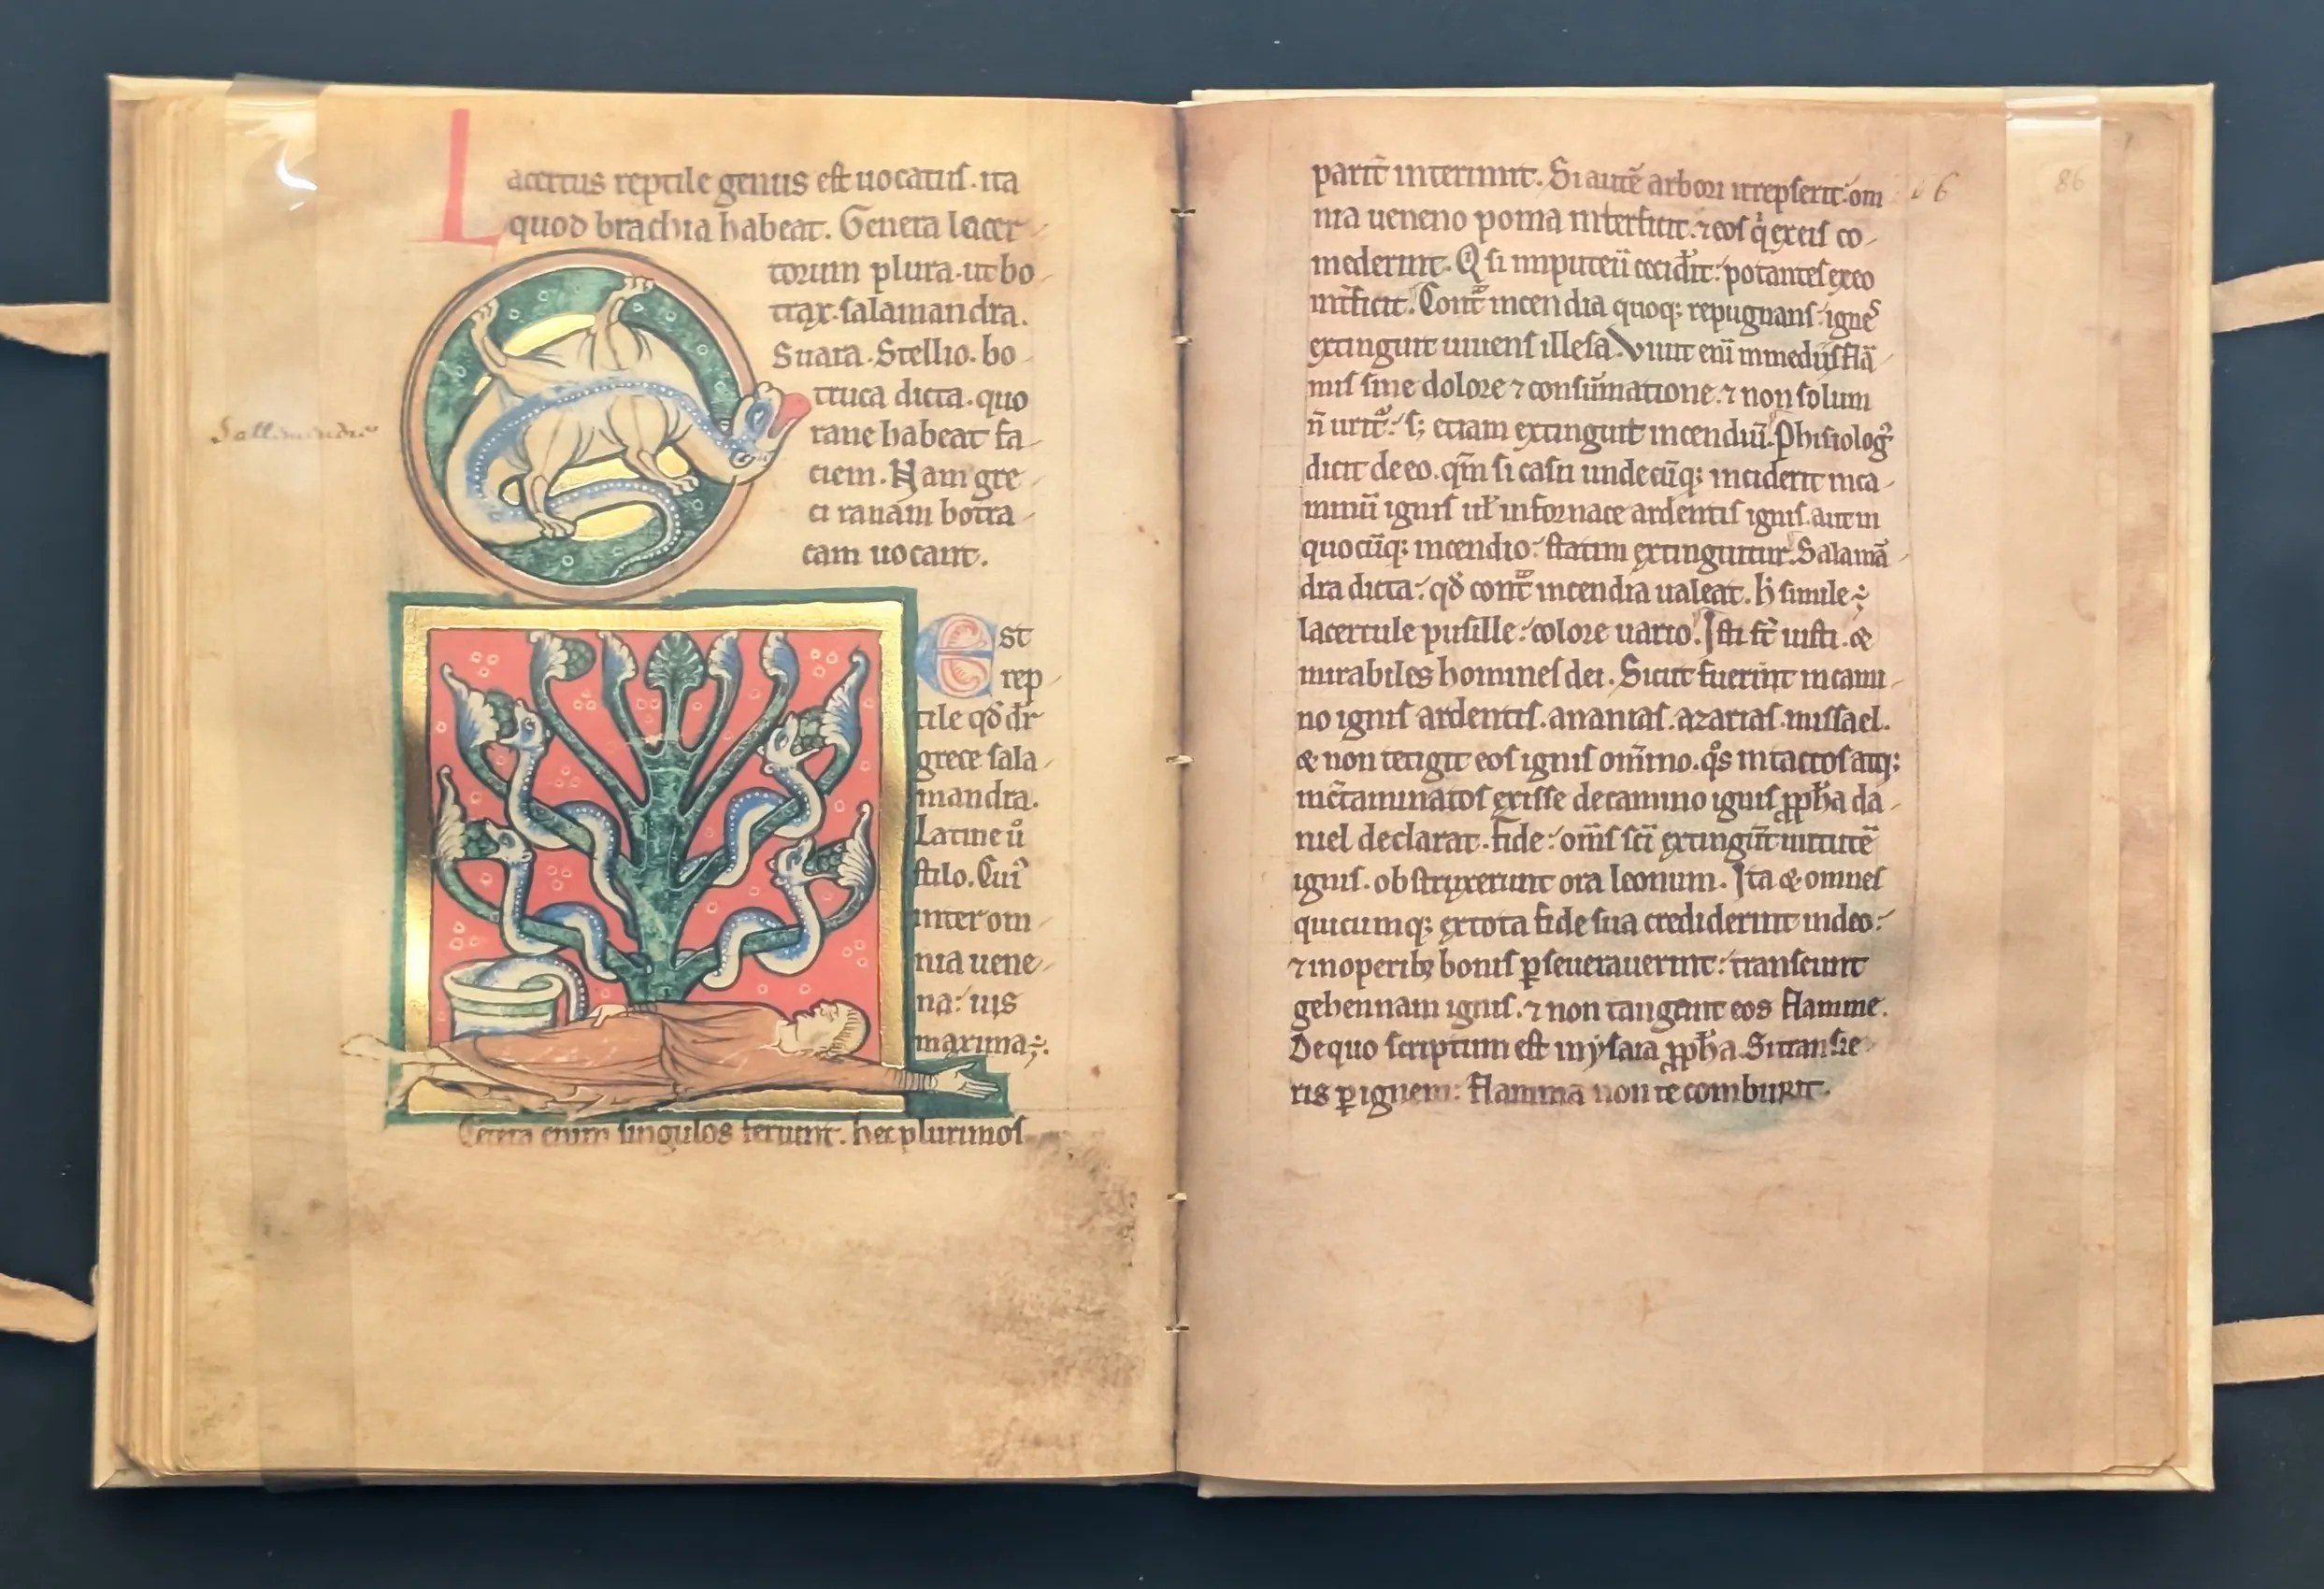 Lacertus reptile genus est uocatus. ita
quod brachia habeat. Genera lacer
torum plura. ut bo
trax. salamandra.
Saura. Stellio. bo
truca dicta. quo
rane habeat fa
ciem. Nam gre
ci ranam botra
cam uocant.
Est
rep
tile qđ dr̄
grece sala
mandra.
Latine u°
stilo. Cui᾽
inter om
nia uene
na: uis
maxima.
Cetera enim singulos feriunt. hec plurimos
parit̄ interimit. Si autē arbori irrepserit: om
nia ueneno poma interficit. ⁊ eos q̇ ex eis co
mederint. Q si in puteū ceciđit: potantes ex eo
int̄ficit. Cont̄ incendia quoq; repugnans: ignes
extinguit uiuens illesa. Viuit eni in mediis flā
mis sine dolore ⁊ consūmatione. ⁊ non solum
n̄ urit᷑: s; etiam extinguit incendiū. Phisiolog᾽
dicit de eo. qm̄ si casu undecūq; inciderit in ca
minū ignis ul̄ in fornace ardentis ignis. aut in
quocūq; incendio: statim extinguitur. Salamā
dra dicta: qđ cont̄ incendia ualeat. h̄ simile ÷
lacertule pusille: colore uario. Isti st̄ iusti. &
mirabiles homines dei. Sicut fuerint in cami
no ignis ardentis. ananias. azarias. missael.
& non tetigit eos ignis om̄ino. q°s intactos atq;
int̄aminatos exisse de camino ignis ꝓpħa da
niel declarat. fide: om̄s sc̄i extingūt uirtutē
ignis. obstruxerunt ora leonum. Ita & omnes
quicumq; ex tota fide sua crediderint in deo:
⁊ in operibꝫ bonis ꝑseuerauerint: transeunt
gehennam ignis. ⁊ non tangent eos flamme.
De quo scriptum est in ysaia ꝓpħa. Si transie
ris ꝑ ignem: flamma non te comburit.
86